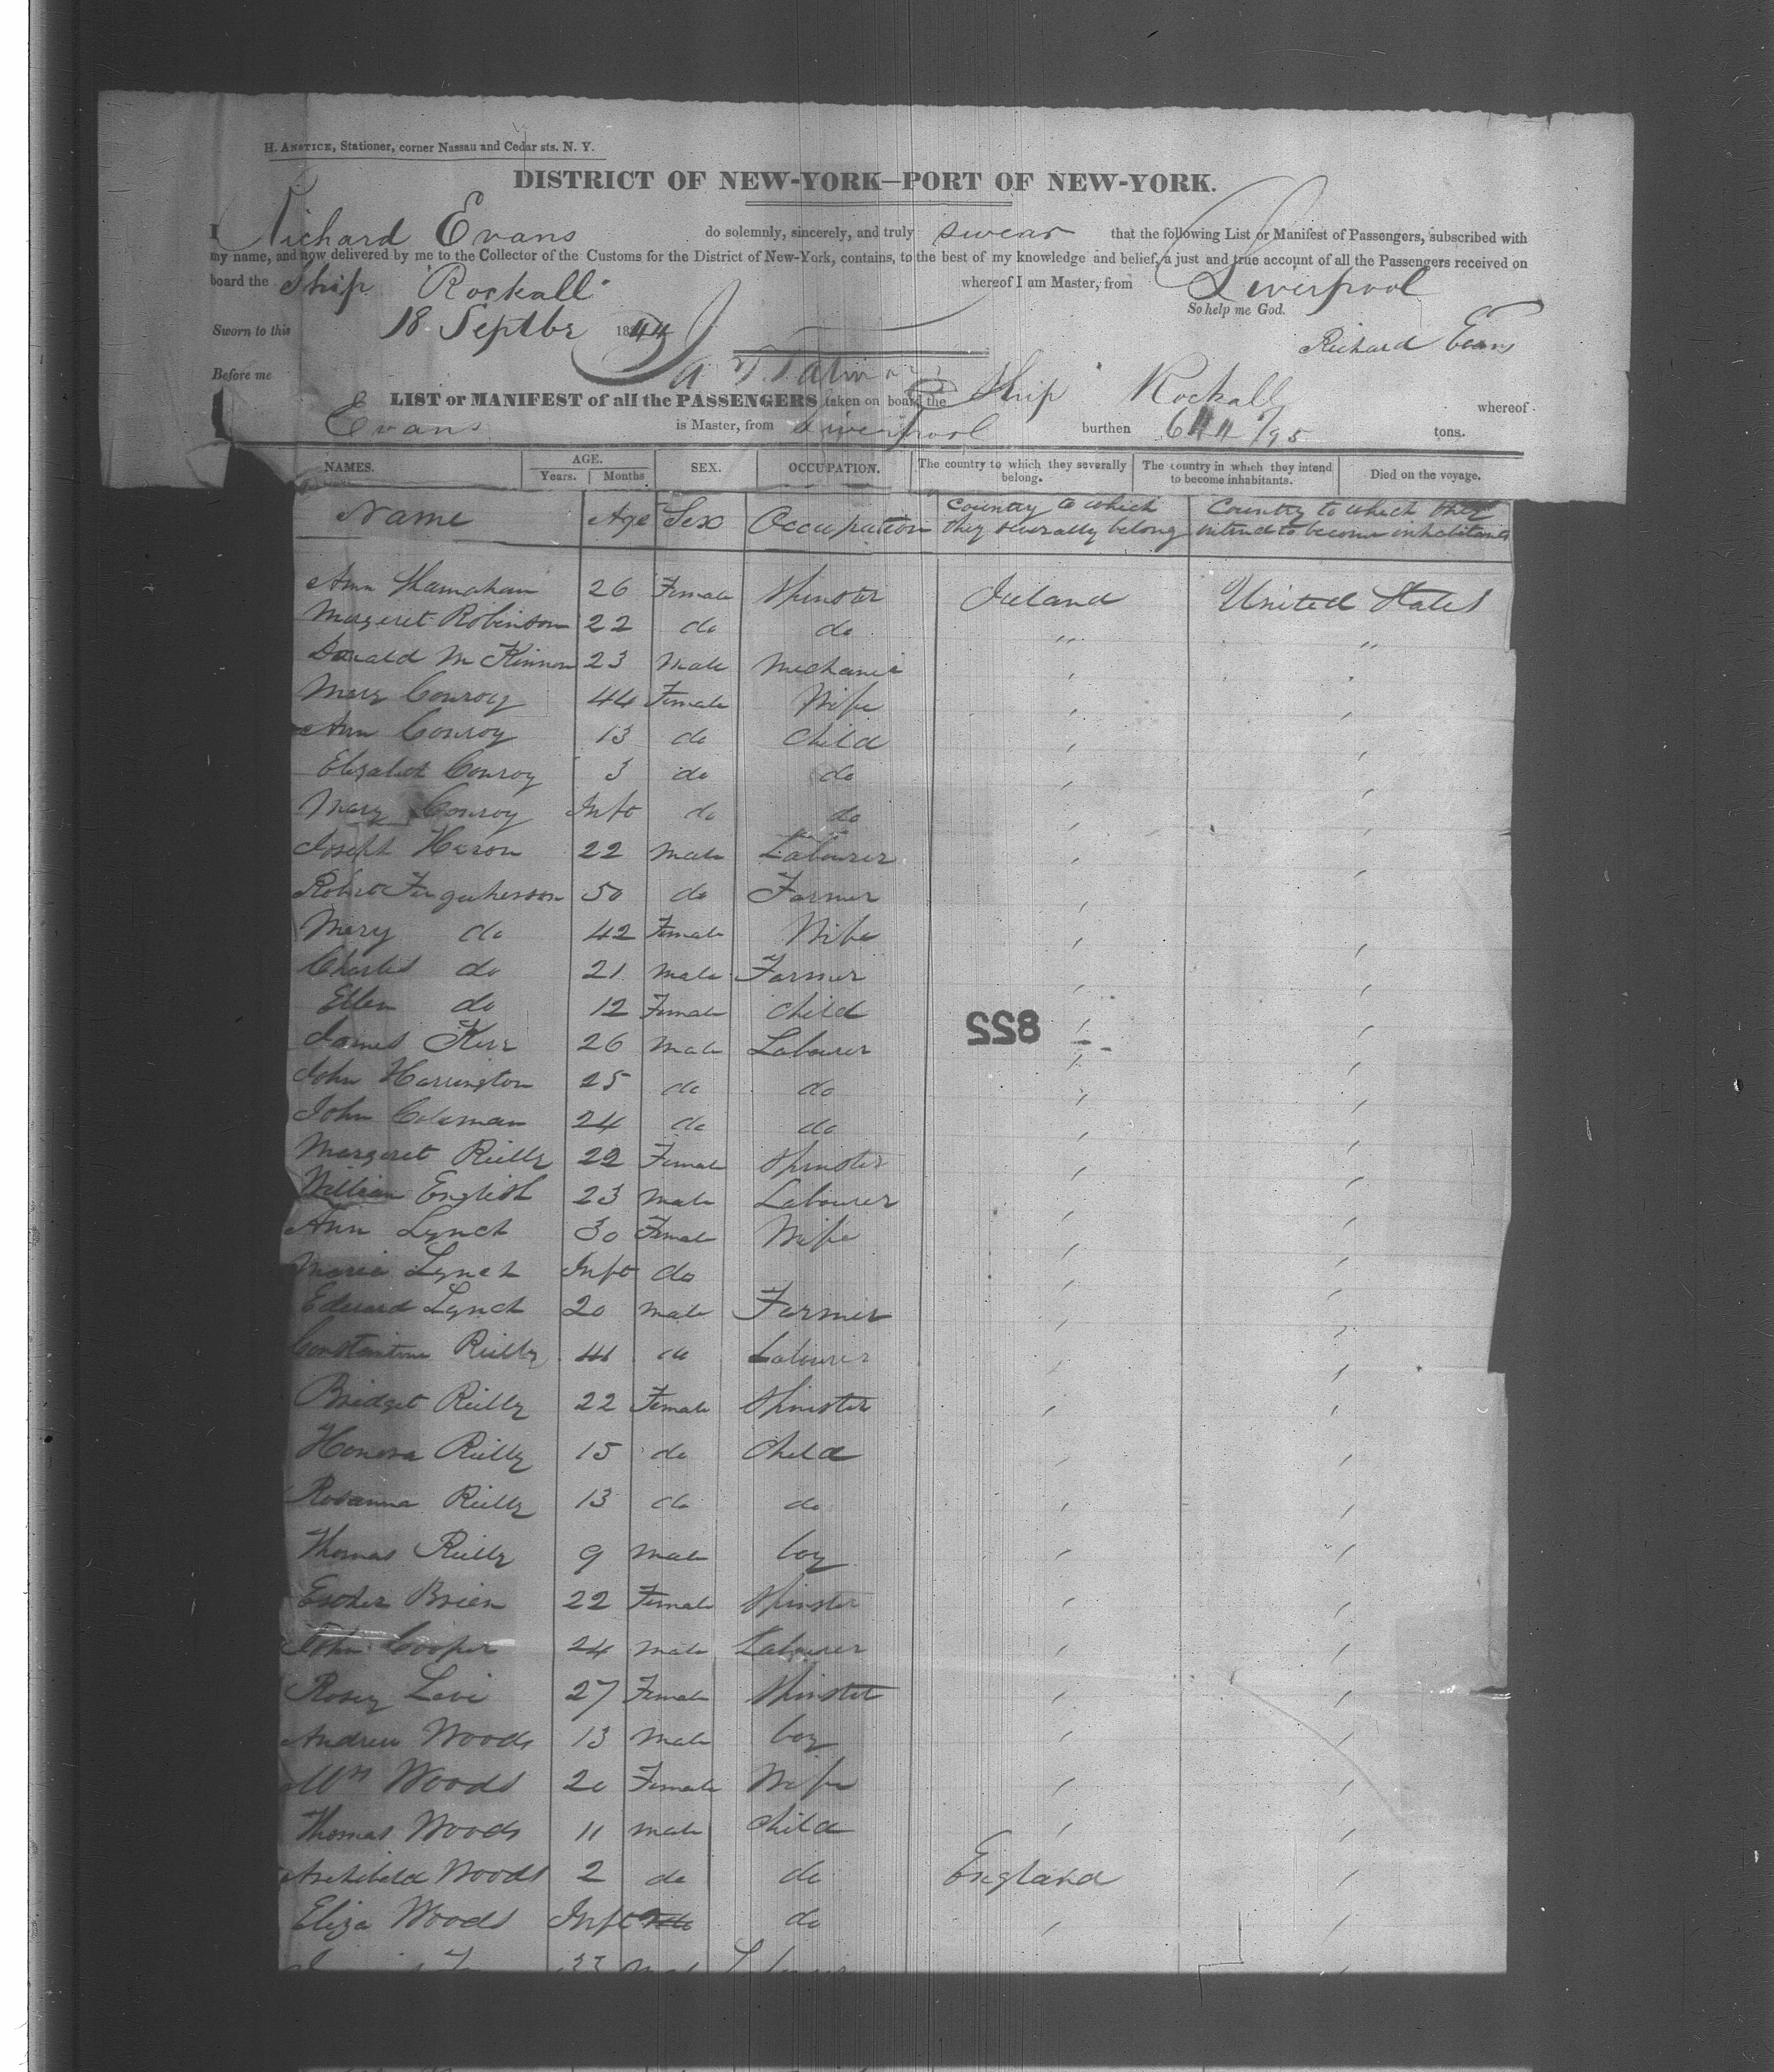 H. ANSTICE, Stationer, corner Nassau and Cedar sts. N. Y.
DISTRICT OF NEW-YORK—PORT OF NEW-YORK.
I Richard Evans do solemnly, sincerely, and truly swear that the following List or Manifest of Passengers, subscribed with
my name, and now delivered by me to the Collector of the Customs for the District of New-York, contains, to the best of my knowledge and belief, a just and true account of all the Passengers received on
board the Ship Rockall whereof I am Master, from Liverpool
So help me God.
Sworn to this 18 Septbr 1844
Richard Evans
Before me
LIST or MANIFEST of all the PASSENGERS taken on board the Ship Rockall whereof
Evans is Master, from Liverpool burthen 644 /95 tons.
NAMES. AGE. Years. Months SEX. OCCUPATION. The country to which they severally belong. The country in which they intend to become inhabitants. Died on the voyage.
Name Age Sex Occupation Country to which they severally belong Country to which they intend to become inhabitants
Ann 26 Female Spinster Ireland United States
Margeret Robinson 22 do do " "
Donald McKinnon 23 Male Mechanic
Mary Conroy 44 Female Wife
Ann Conroy 13 do Child
Elizabeth Conroy 3 do do
Mary Conroy Inft do do
Joseph Heron 22 Male Labourer
Robert 50 do Farmer
Mary do 42 Female Wife
Charles do 21 Male Farmer
Ellen do 12 Female Child
822
James Kerr 26 Male Labourer
John Harrington 25 do do
John Coleman 24 do do
Margaret Reilly 22 Female Spinster
William English 23 Male Labourer
Ann Lynch 30 Female Wife
Maria Lynch Inft do
Edward Lynch 20 Male Farmer
Constantine Reilly do Labourer
Bridget Reilly 22 Female Spinster
Honora Reilly 15 do Child
Rosanna Reilly 13 do do
Thomas Reilly 9 Male boy
Esther Brien 22 Female Spinster
John Cooper 24 Male Labourer
Rosey Levi 27 Female Spinster
Andrew Woods 13 Male boy
Mrs Woods 20 Female Wife
Thomas Woods 11 Male Child
Archibald Woods 2 do do England
Eliza Woods Inft do